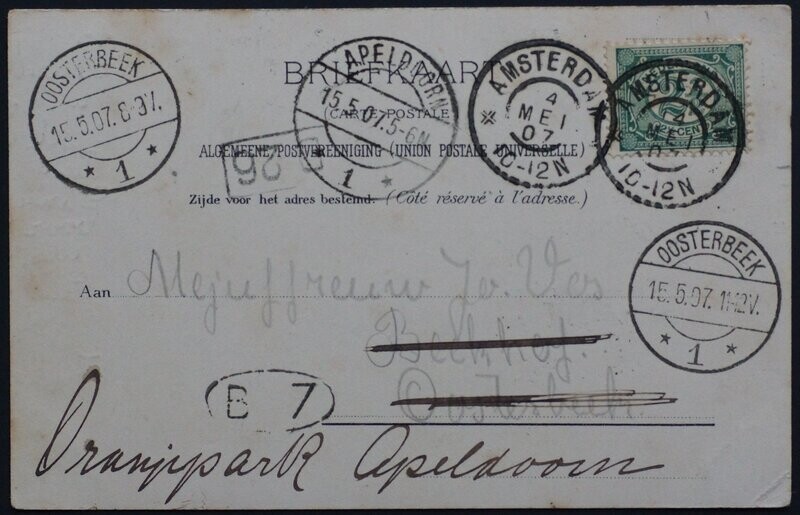 OOSTERBEEK
15.5.07. 8-9V.
* 1 *
APELDOORN
15.5.07. 5-6N
1 *
* AMSTERDAM
4
MEI
07
10-12N
AMSTERDAM
4
MEI
07
10-12N
BRIEFKAART
(CARTE POSTALE)
ALGEMEENE POSTVEREENIGING (UNION POSTALE UNIVERSELLE)
26
Zijde voor het adres bestemd. (Côté réservé à l'adresse.)
OOSTERBEEK
15.5.07. 11-12V.
* 1 *
Aan Mejuffreuw Jo. Vos
Beekhof.
Oosterbeek.
B 7
Oranjepark Apeldoorn